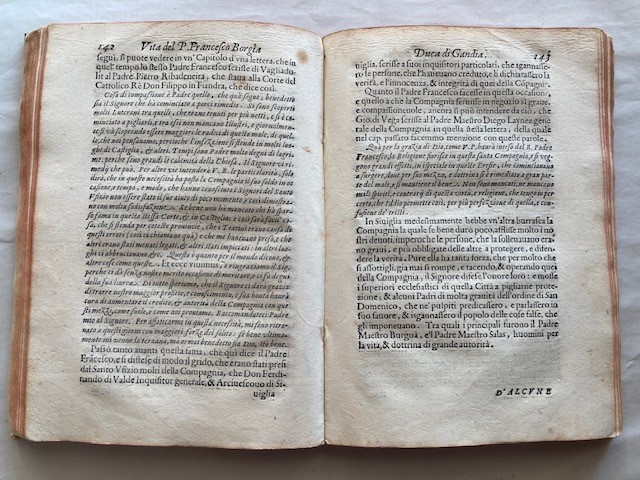 142 Vita del P. Francesco Borgia
seguì, si puote vedere in vn' Capitolo d'vna lettera, che in
quel' tempo lo stesso Padre Francesco scrisse di Vagliado
lit al Padre Pietro Ribadeneira, che staua alla Corte del
Cattolico Rè Don Filippo in Fiandra, che dice così.
Cosa di compassione è Padre quella, che quà seguì; benedetto
sia il Signore che hà cominciato a porci rimedio. Si sono scoperti
molti Luterani tra quelli, che erano tenuti per più netti, e si è
cominciato a pigliarli, e tra essi non mancano Illustri, e giornalmen
te si và scoprendo essere maggiori le radici di questo male, di quel
lo, che noi pensauamo, perche l'infezzione si stende in molti luo
ghi di Castiglia, & altri. Tempi sono Padre molto degni di lagri
me, perche sono grandi le calamità della Chiesa. Il Signore ci ri-
medij che può. Per altre vie intenderà V. R. le particolarità, solo
dirò, che in queste necessità hà posto la Compagnia il suo saldo in oc
casione, tempo, e modo, che hanno conosciuto i Signori del Santo
Vfizio non essere stato il suo aiuto di poco momento, e così dimostra-
no con molta sodisfazione. Sè bene non hà mancato che hà spar-
so fama in questa stessa Corte, & in Castiglia; e così tra l'altre co-
se, che si stenda per coteste prouincie, che i Teatini erano causa di
questi errori (così ci chiamano quà) e che mè haueuano preso, e che
altri erano stati menati legati, & altri stati impiccati: in altri luo-
ghi ci abbruciauano, &c. Questo è quanto per il mondo dicono, &
altre cose come queste. Et ecce viuimus, e ringraziamo il Sign.
perche ci dà senza nostro merito occasione di meritare, ci fa degni
della sua liurea. Di tutto speriamo, che il Signore ci darà grazia
di trarre nostro maggior profitto, e conseruamento, e sua santa haurà
cura di aumentare il credito, & autorità della Compagnia con que
sti mezzi, come suole, e come noi prouiamo. Raccomandoci Padre
mio al Signore. Per assaticarmi in questa necessità, mi sono ritroua
to a questi giorni con maggiori forze del solito: se bene vltimamen-
te mi venne la terzana, ma ora mi stò benedetto sia Dio, stò bene.
Passò tanto auanti questa fama, che quì dice il Padre
Frãcesco, e si distese di modo il grido, che erano stati presi
dal Santo Vfizio molti della Compagnia, che Don Ferdi-
nando di Valde Inquisitor generale, & Arciuescouo di Si-
uiglia
Duca di Gandia. 143
uiglia, scrisse a' suoi inquisitori particolari, che sgannasse-
ro le persone, che l'haueuano creduto, e li dichiarassero la
verità, l'innocenza, & integrità di quei della Compagnia.
Quanto il Padre Francesco facesse in questa occasione,
e quello a che la Compagnia seruisse in negotio sì graue,
e compassioneuole, ancora si può intendere da ciò, che
Gio. di Vega scrisse al Padre Maestro Diego Laynez gene-
rale della Compagnia in questa stessa lettera, della quale
nel cap. passato facemmo menzione con queste parole.
Quà per la grazia di Dio, come V. P. haurà inteso dal R. Padre
Francesco, la Religione fiorisce in questa santa Compagnia, e si veg-
gono grandi effetti, in ispeciale in queste Eresie, che cominciauano
a surgere, dout per suo mezzo, e dottrina si è rimediato a gran par-
te del male, e si mantiene il bene. Non sono mancati, ne mancano
mali spiriti, e contrarij di questa virtù, e religione, che tengo io per
certo, che Iddio permette così, per più perfezzione di quella, e con-
fusione de' tristi.
In Siuiglia medesimamente hebbe vn'altra burrasca la
Compagnia la quale se bene durò poco, afflisse molto i no
stri deuoti, imperoche le persone, che la solleuauano erano
grani, e più obbligate delle altre à protegere, e difen-
dere la verità. Pure ella ha tanta forza, che per molto che
si assottigli, gia mai si rompe, e tacendo, & operando quei
della Compagnia, il Signore difese l'onor loro: e mosse
i superiori ecclesiastici di quella Città a pigliarne protez-
zione, & alcuni Padri di molta grauità dell'ordine di San
Domenico, che ne' pulpiti predicassero, e parlassero in
suo fauore, & isgannassero il popolo delle cose false, che
gli imponeuano. Tra quali i principali furono il Padre
Maestro Burgoà, e'l Padre Maestro Salas, huomini per
la vita, & dottrina di grande autorità.
D'ALCVNE